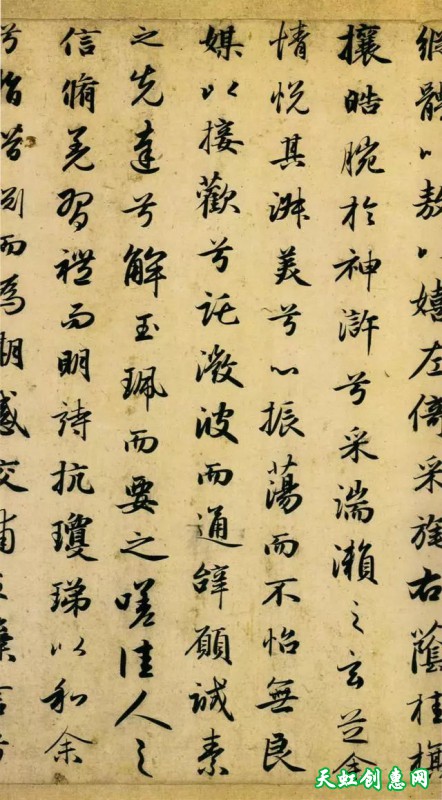 縱體以敖以嬉左倚采旄右蔭桂旗
攘皓腕於神滸兮采湍瀨之玄芝余
情悅其淑美兮心振蕩而不怡無良
媒以接歡兮託微波而通辭願誠素
之先達兮解玉珮而要之嗟佳人之
信脩羌習禮而明詩抗瓊珶以和余
兮指而為期感交甫之棄言兮
天虹创惠网